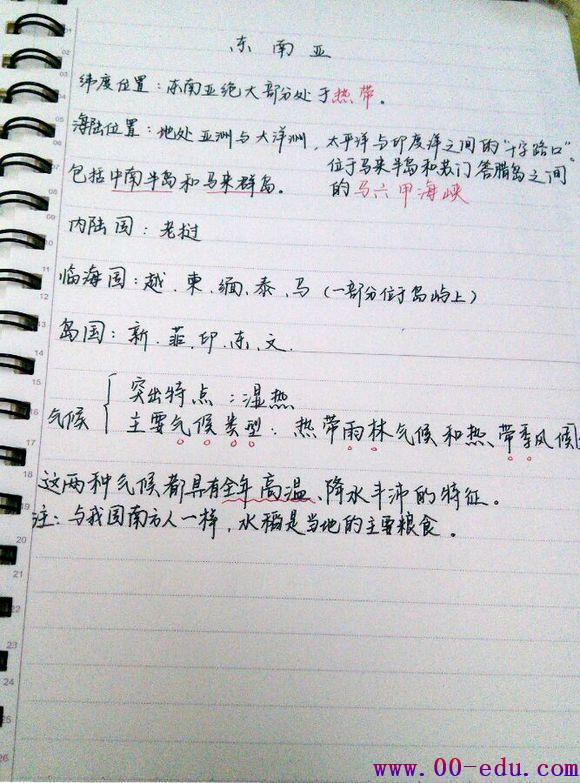 东南亚
纬度位置：东南亚绝大部分处于热带。
海陆位置：地处亚洲与大洋洲，太平洋与印度洋之间的"十字路口"
位于马来半岛和苏门答腊岛之间
包括中南半岛和马来群岛。
的马六甲海峡
内陆国：老挝
临海国：越、柬、缅、泰、马（一部分位于岛屿上）
岛国：新、菲、印、东、文.
气候
突出特点：湿热
主要气候类型：热带雨林气候和热带季风候
这两种气候都具有全年高温、降水丰沛的特征。
注：与我国南方人一样，水稻是当地的主要粮食。
www.00-edu.com